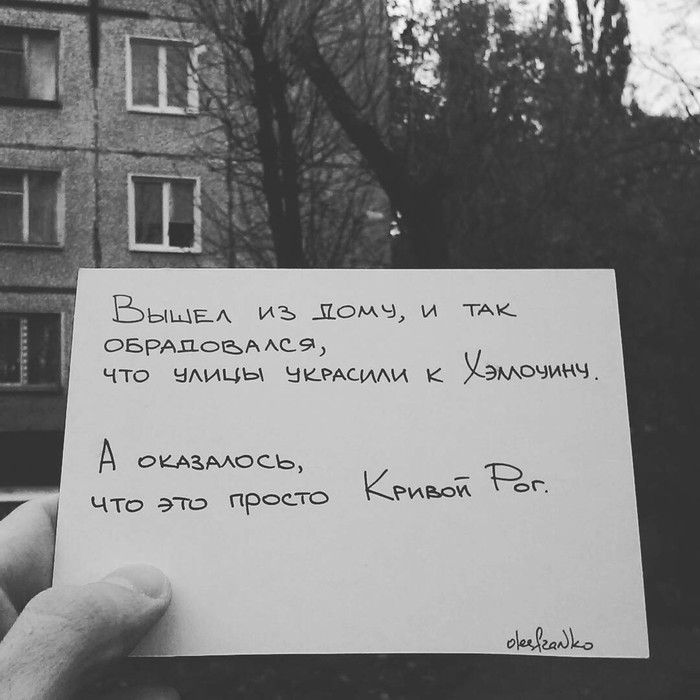 Вышел из дому, и так
обрадовался,
что улицы украсили к Хэлоуину.
А оказалось,
что это просто Кривой Рог.